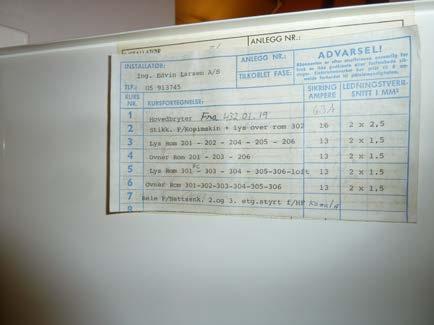 INSTALLATØR ANLEGG NR.:
INSTALLATØR: ANLEGG NR.: ADVARSEL!
Ing. Edvin Larsen A/S TILKOBLET FASE:
TLF.: OS 913745
KURS NR. KURSFORTEGNELSE: SIKRING AMPERE LEDNINGSTVERR- SNITT I MM²
1 Hovedbryter Fra 432.01.19 63A
2 Stikk. F/Kopimskin + lys over rom 302 16 2 x 2,5
3 Lys Rom 201 - 202 - 204 - 205 - 206 13 2 x 1.5
4 Ovner Rom 201 - 203 - 206 13 2 x 1.5
5 Lys Rom 301 - 303 - 304 - 305-306-loft 13 2 x 1.5
6 Ovner Rom 301-302-303-304-305-306 13 2 x 1.5
7 Rele F/Nattsenk. 2.og 3. etg.styrt f/HF
8